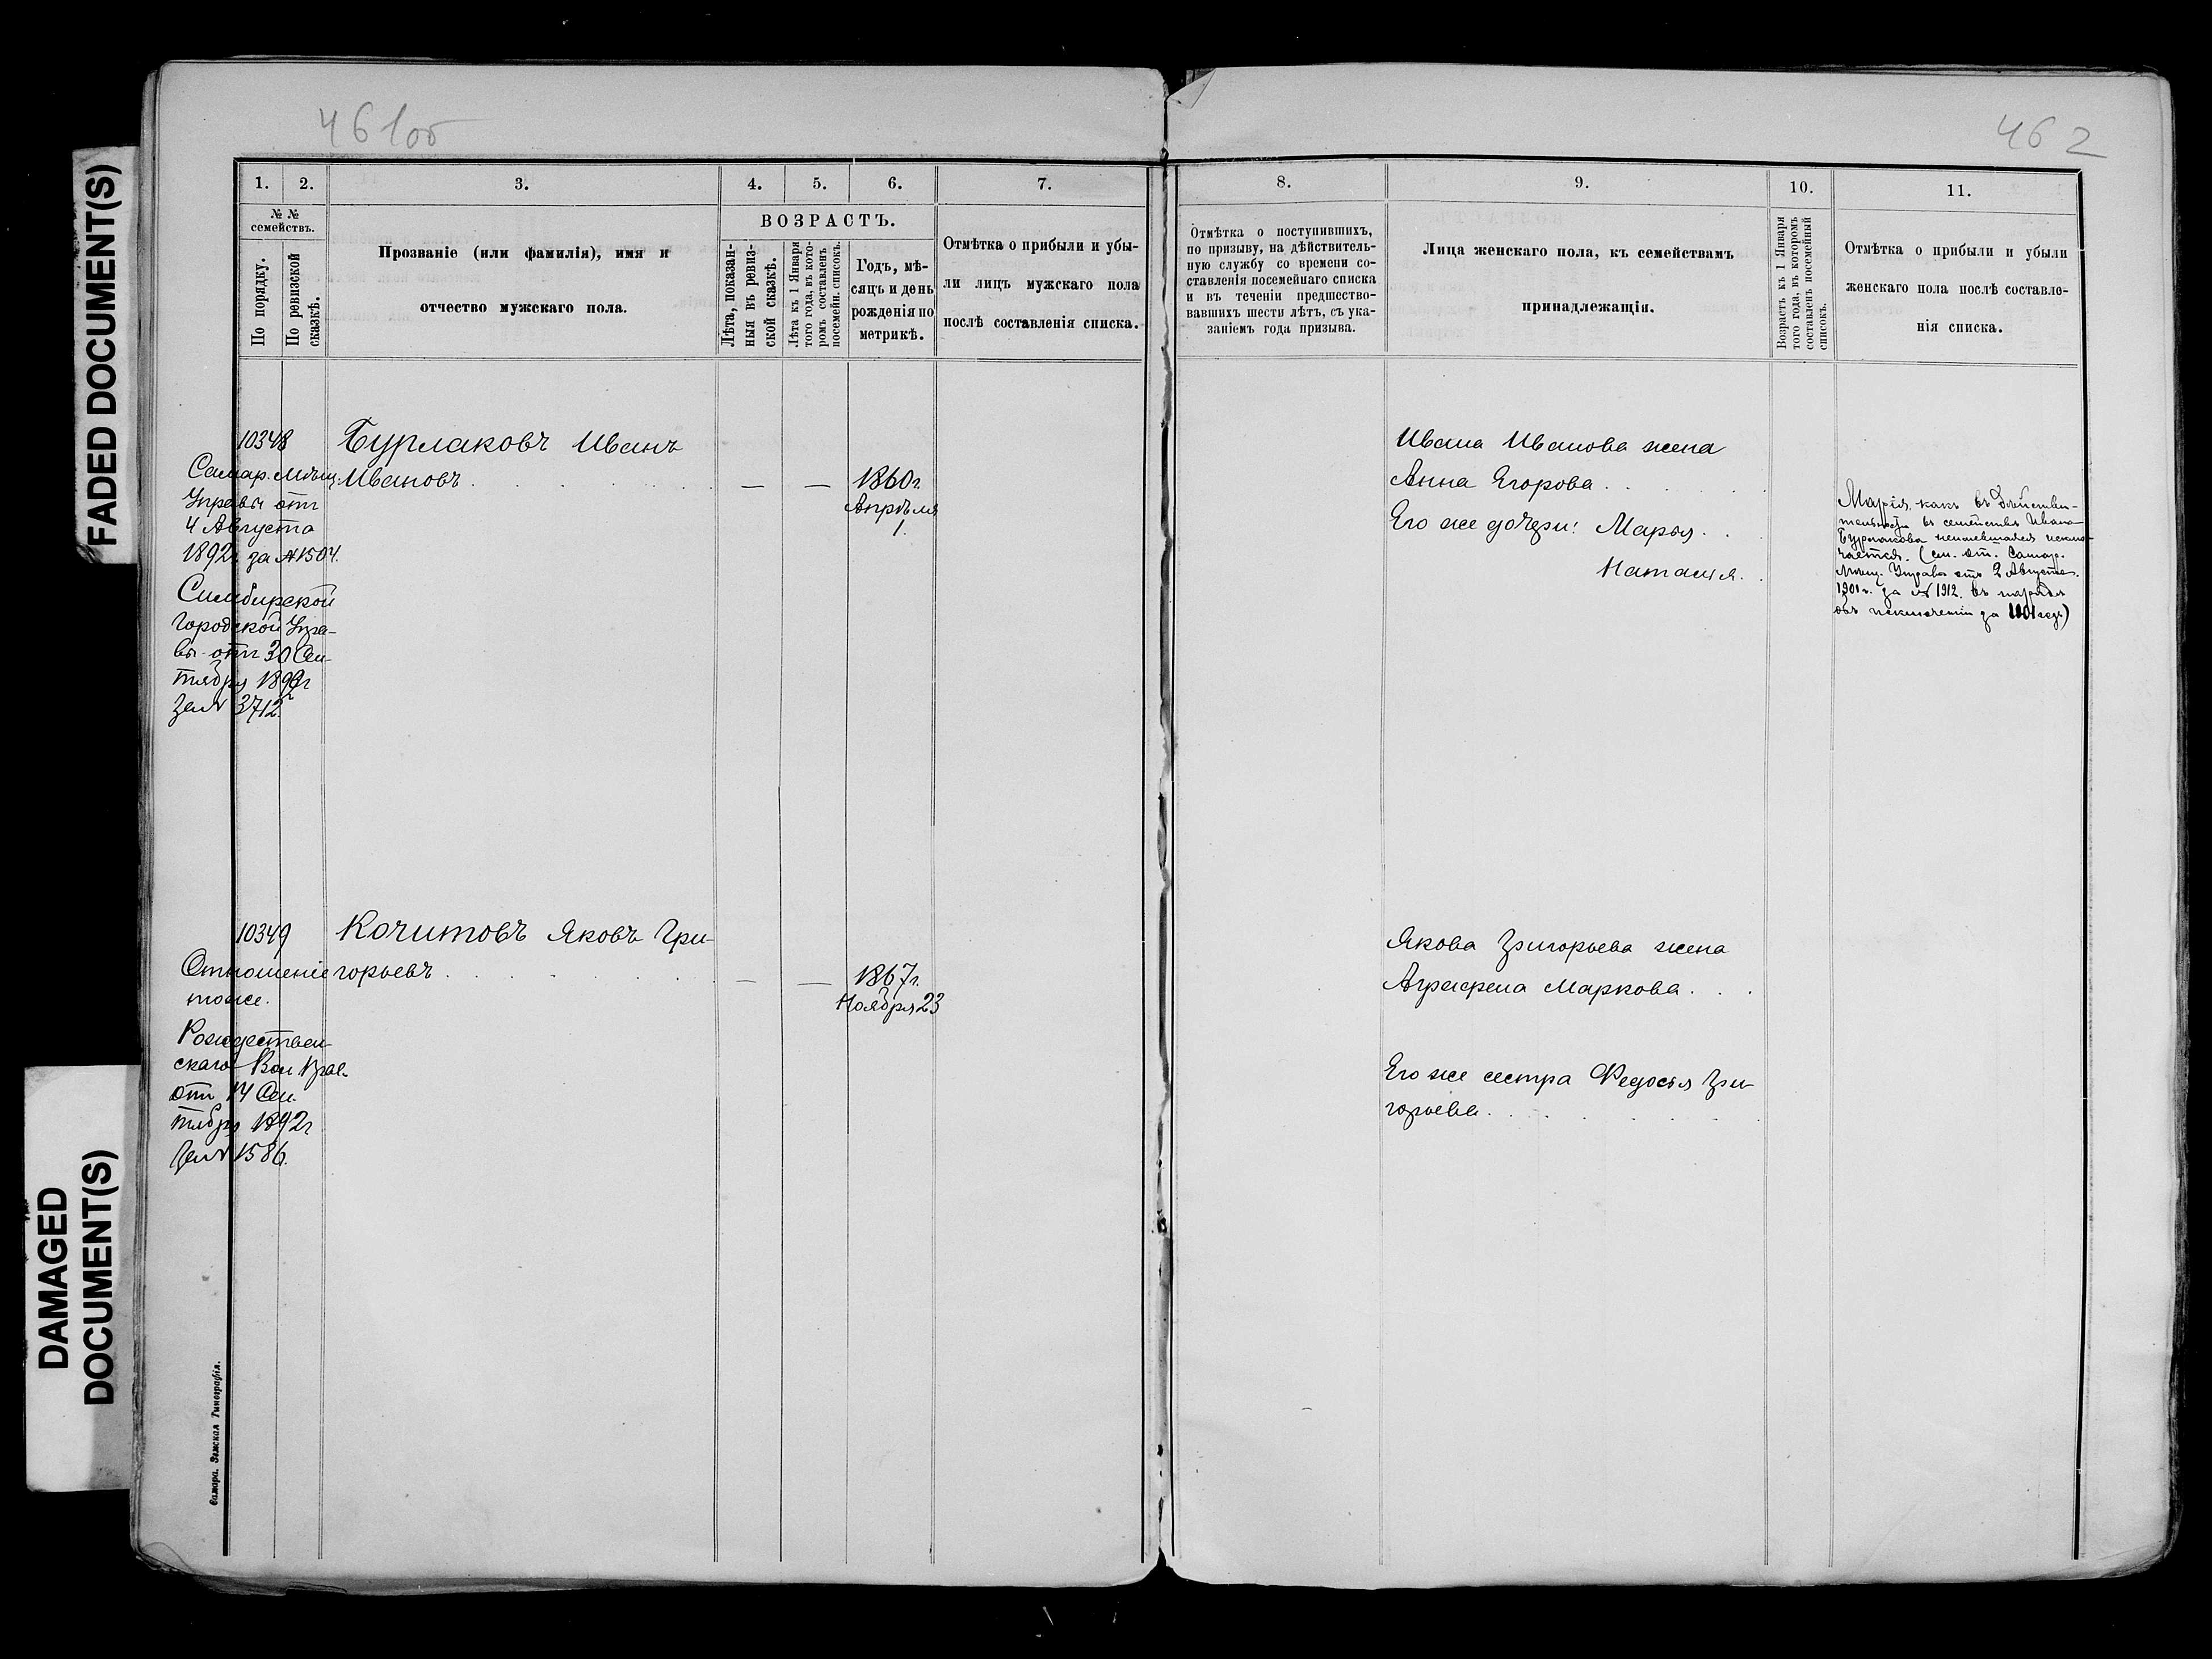 461об
462
FADED DOCUMENT(S)
DAMAGED
DOCUMENT(S)
1.
2.
3.
4.
5.
6.
7.
№ №
семействъ.
По порядку.
По ревизской
сказкѣ.
Прозваніе (или фамилія), имя и
отчество мужскаго пола.
ВОЗРАСТЪ.
Лѣта, показан-
ныя въ ревиз-
ской сказкѣ.
Лѣта къ 1 Января
того года, въ кото-
ромъ составленъ
посемейн. списокъ.
Годъ, мѣ-
сяцъ и день
рожденія по
метрикѣ.
Отмѣтка о прибыли и убы-
ли лицъ мужскаго пола
послѣ составленія списка.
10348
Бурлаковъ Иванъ
Ивановъ . . . . . .
— — 1860г.
Апрѣля
1.
Самар. Мѣщ.
Управы отъ
4 Августа
1892г. за №1504.
Симбирской
Городской Упра-
вы отъ 30 Сен-
тября 1892г
за № 3712.
10349
Кочитовъ Яковъ Гри-
горьевъ . . . . . .
— — 1867г.
Ноября 23
Отношеніе
тоже.
Рождествен-
скаго Вол Прав.
отъ 14 Сен.
тября 1892г
за № 1586.
Самара. Земская Типографія.
8.
9.
10.
11.
Отмѣтка о поступившихъ,
по призыву, на дѣйствитель-
ную службу со времени со-
ставленія посемейнаго списка
и въ теченіи предшество-
вавшихъ шести лѣтъ, съ ука-
заніемъ года призыва.
Лица женскаго пола, къ семействамъ
принадлежащія.
Возрастъ къ 1 Января
того года, въ которомъ
составленъ посемейный
списокъ.
Отмѣтка о прибыли и убыли
женскаго пола послѣ составле-
нія списка.
Ивана Иванова жена
Анна Егорова . . . .
Его же дочери: Марья . .
Наталія. .
Марія, какъ въ дѣйстви-
тельности въ семействѣ Ивана
Бурлакова неимевшаяся исклю-
чается. (см. от. Самар.
Мѣщ. Управы отъ 2 Августа
1901г. за № 1912. въ нарядѣ
объ исключеніи за 1901 годъ)
Якова Григорьева жена
Аграфена Маркова. . .
Его же сестра Федосья Гри-
горьева. . . . . .